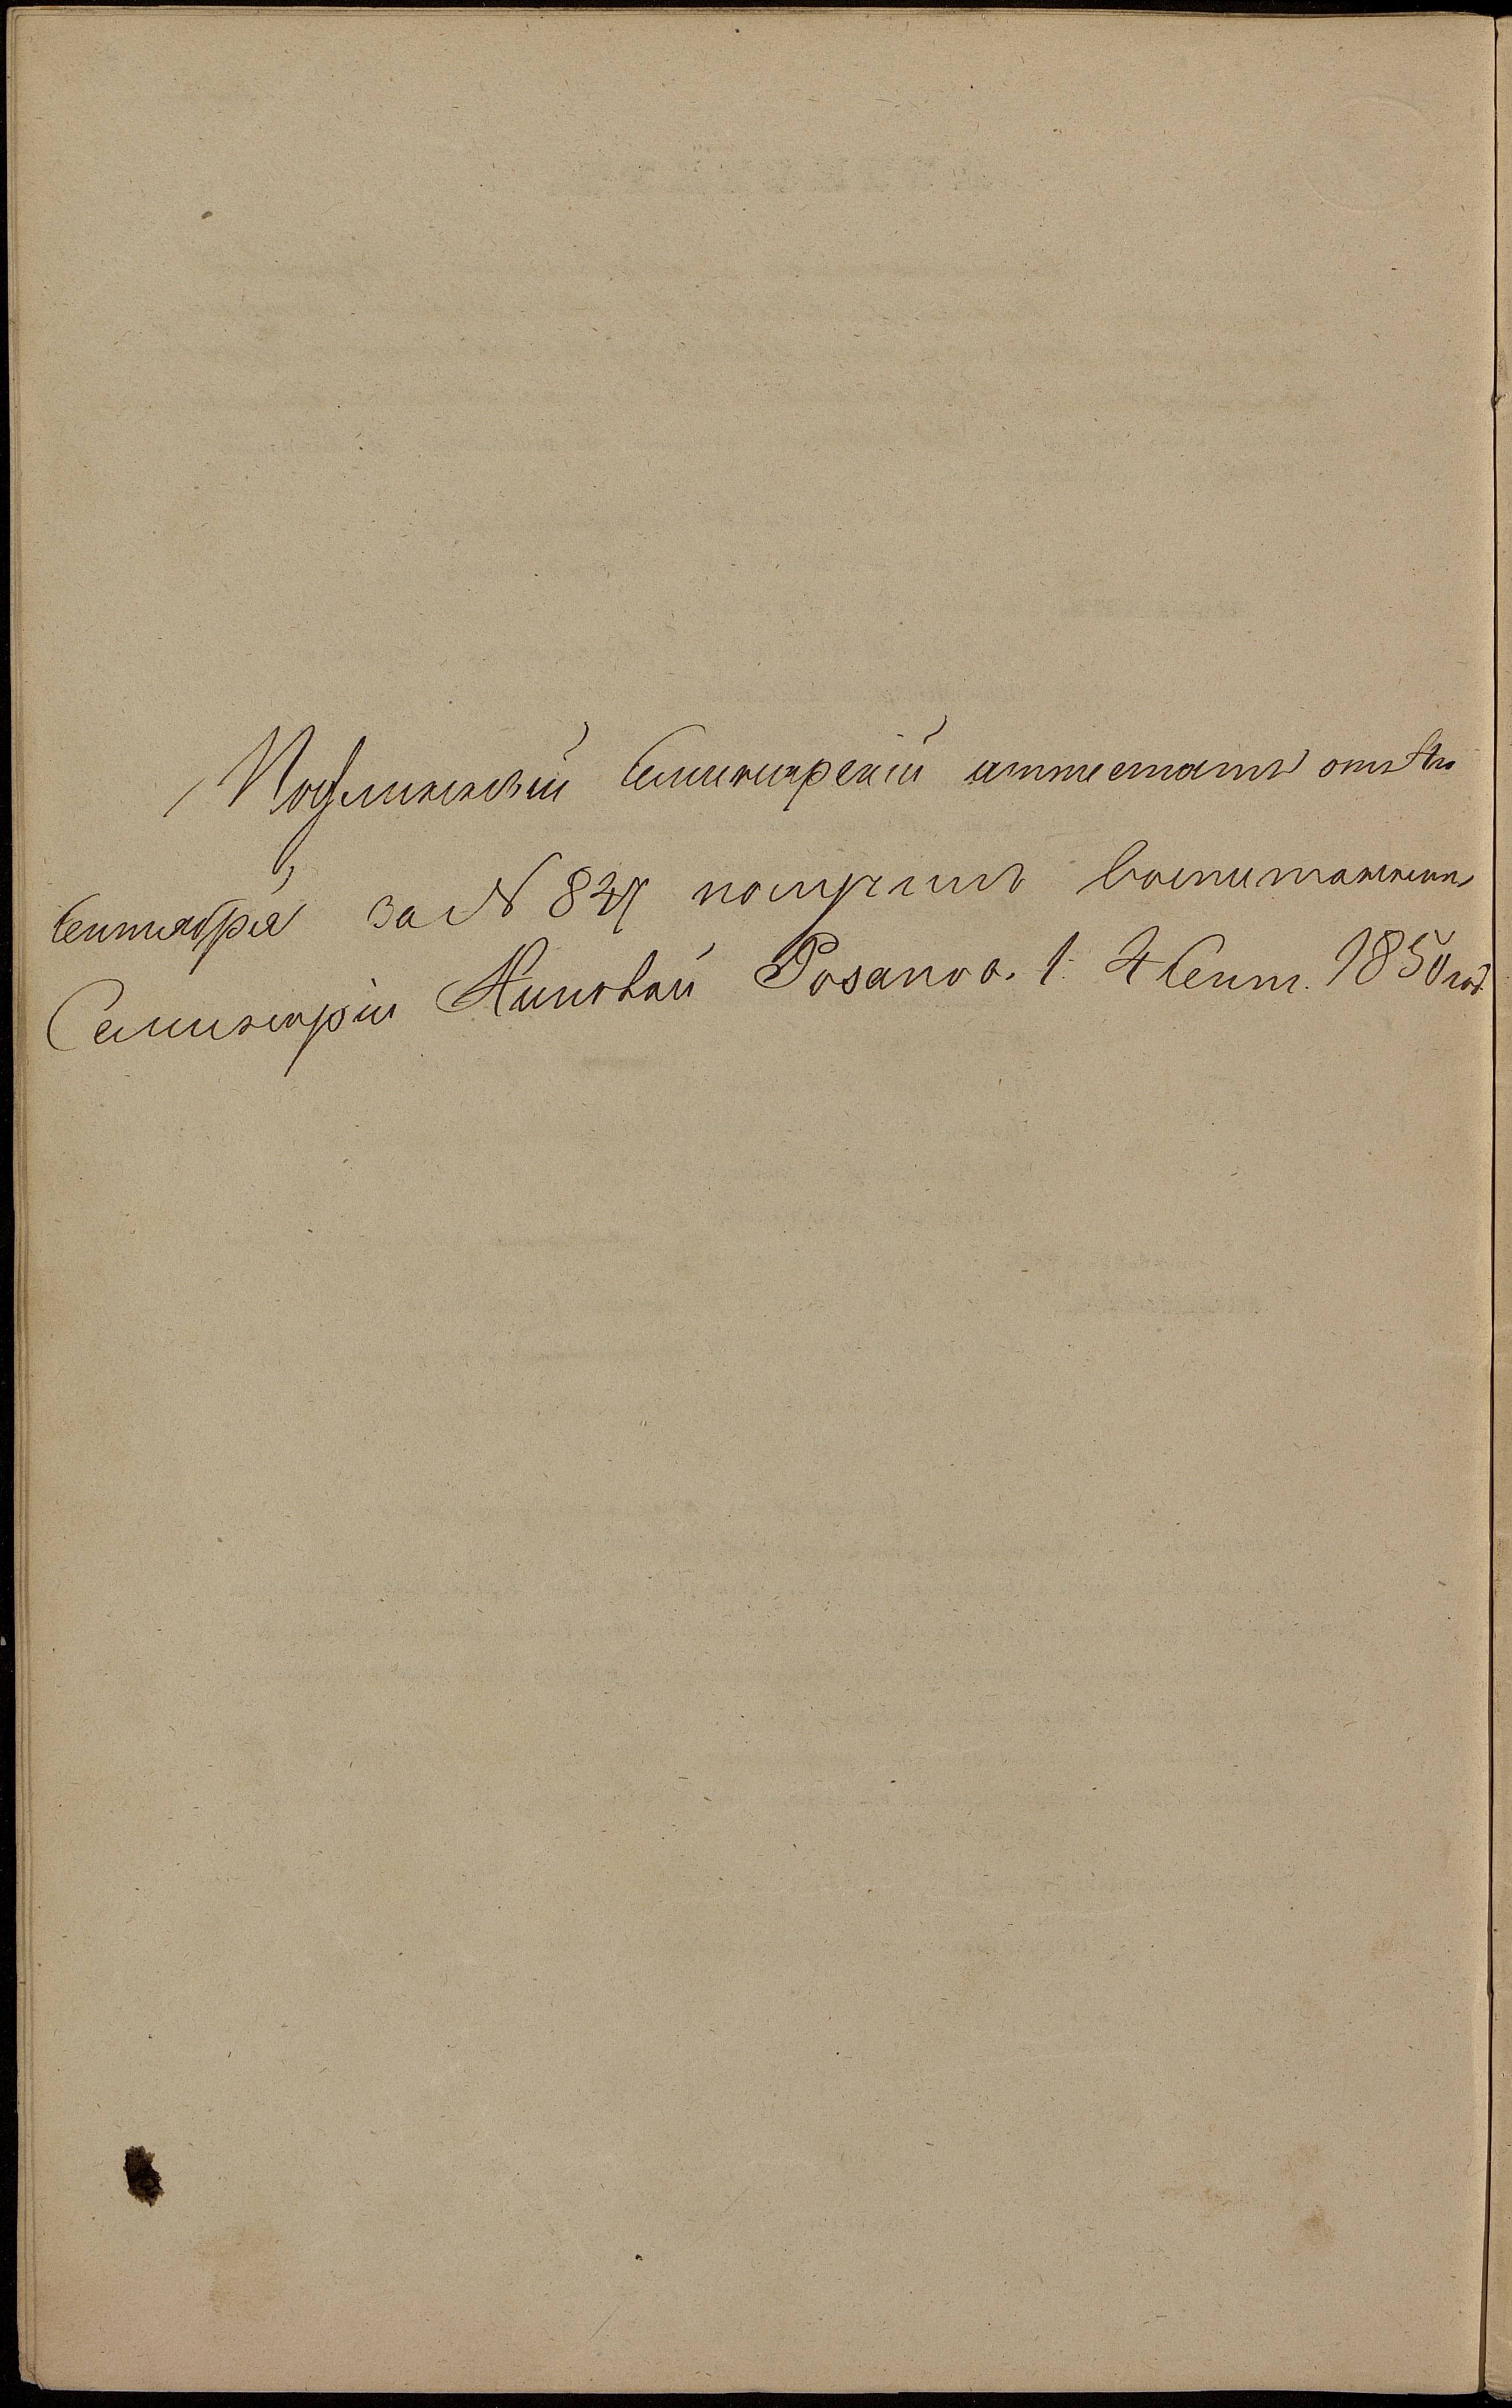 Подлинный Семинарскій аттестатъ отъ
Сентября за № 827 получилъ воспитанникъ
Семинаріи Николай Розановъ. 1. 4 Сент. 1850 год.